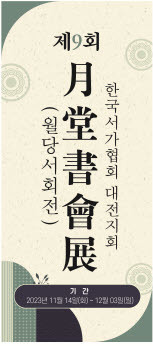 제9회
月堂書會展
(월당서회전)
한국서가협회 대전지회
기 간
2023년 11월 14일(화) ~ 12월 03일(일)